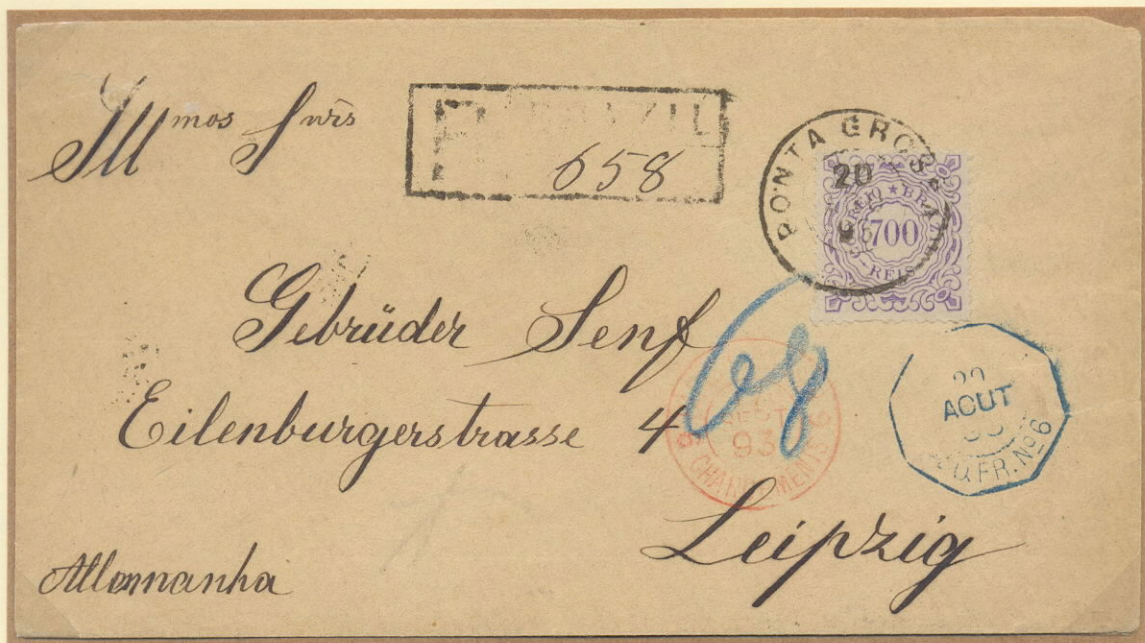 Illmos Snrs
658
PONTA GROSS
20
700
REIS
Gebrüder Senf
68
Eilenburgerstrasse 4
93
CHARGEMENTS
AOUT
FR. No 6
Leipzig
Allemanha